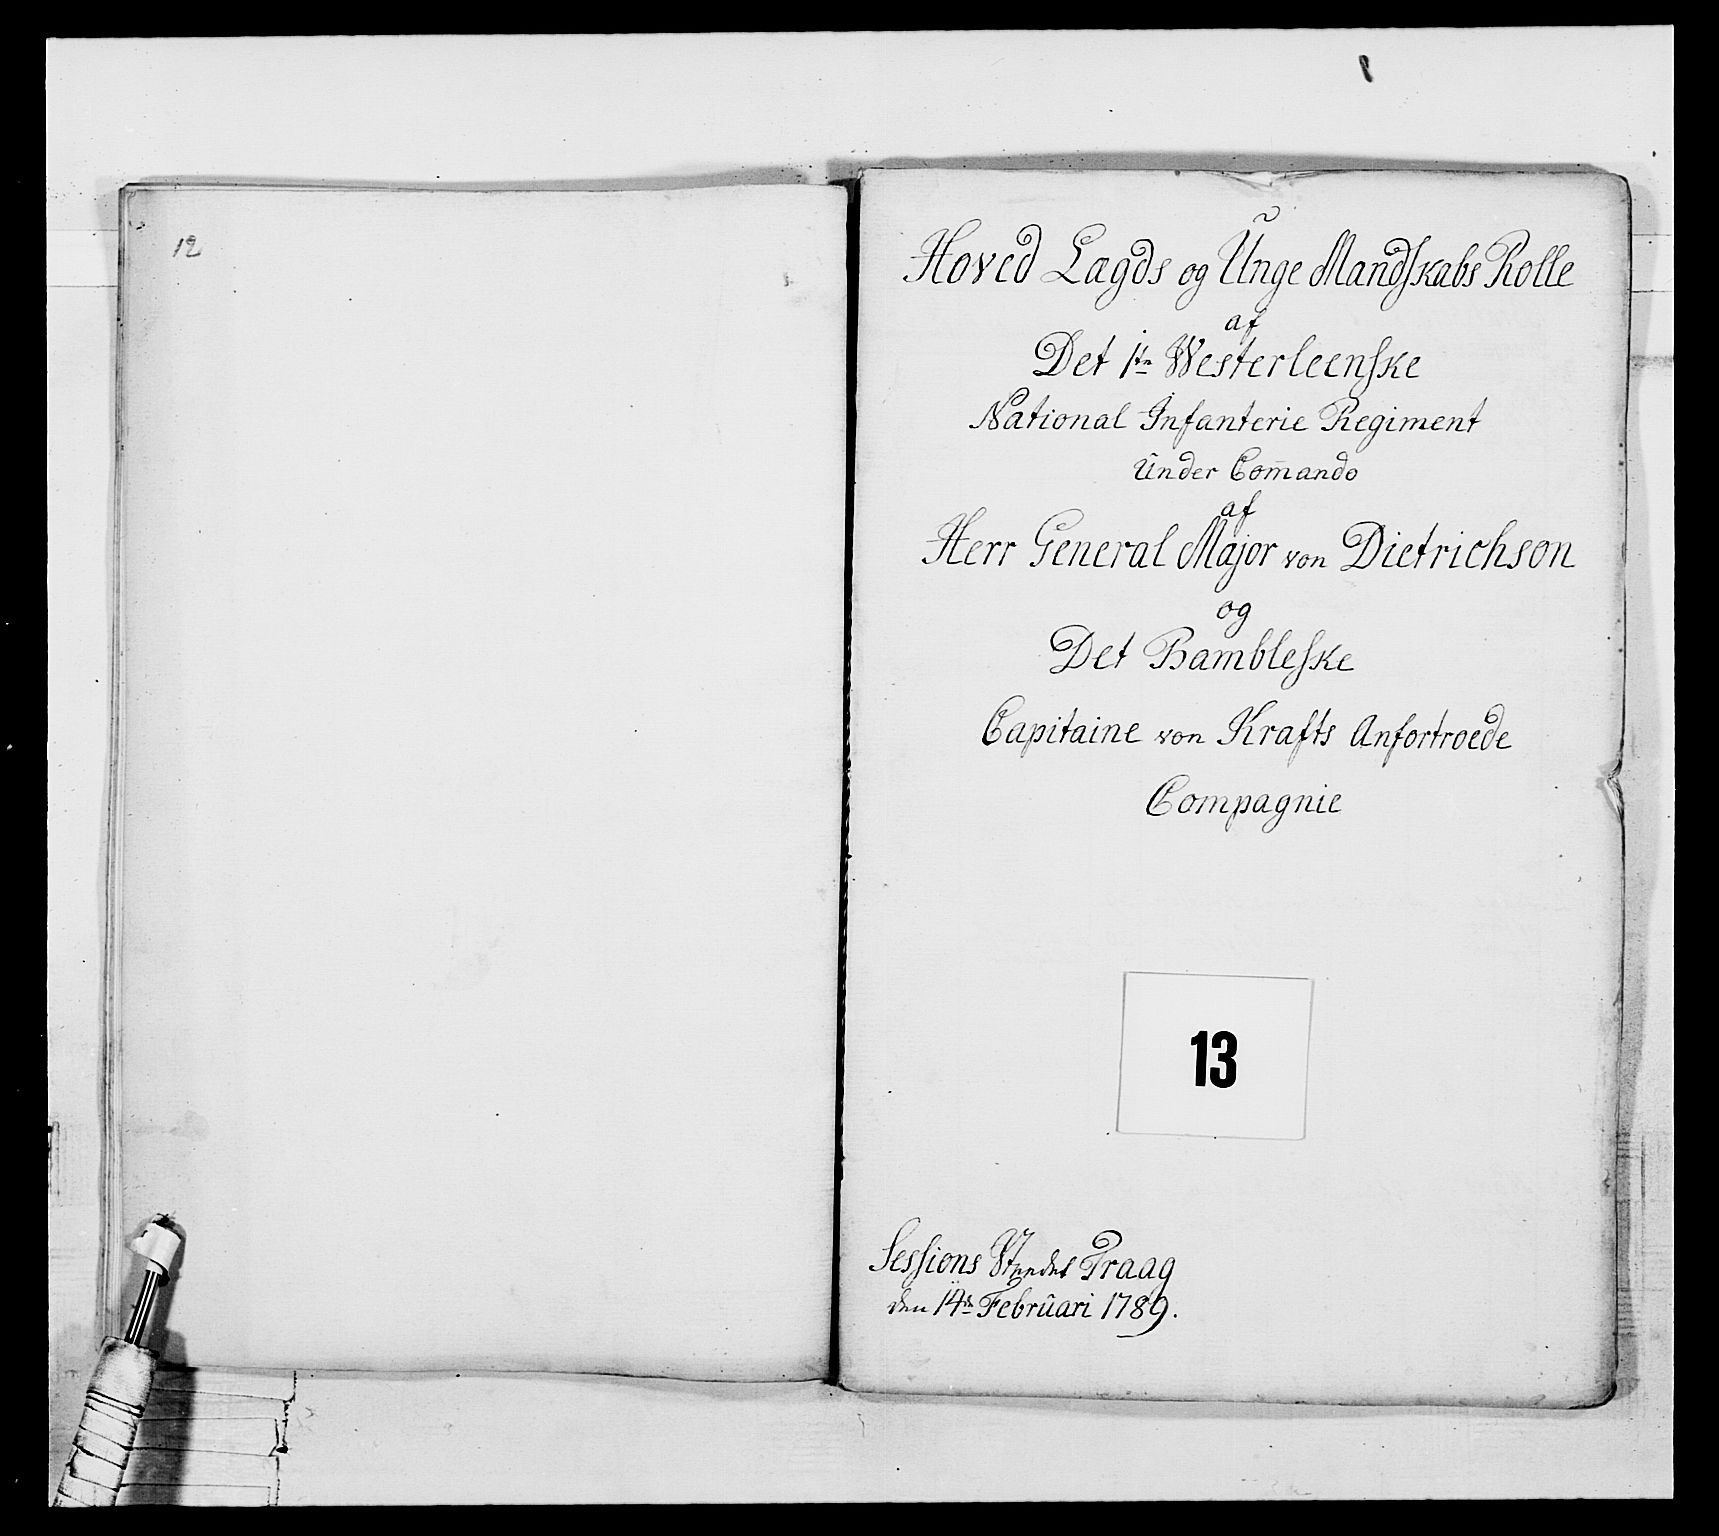 12
Hoved Lægds og Unge Mandskabs Rolle
af
Det 1te Westerleenske
National Infanterie Regiment
Under Com̄ando
af
Herr General Major von Dietrichson
og
Det Bambleske
Capitaine von Krafts Anfortroede
Compagnie
13
Sessions Steedet Traag
den 14de Februari 1789.